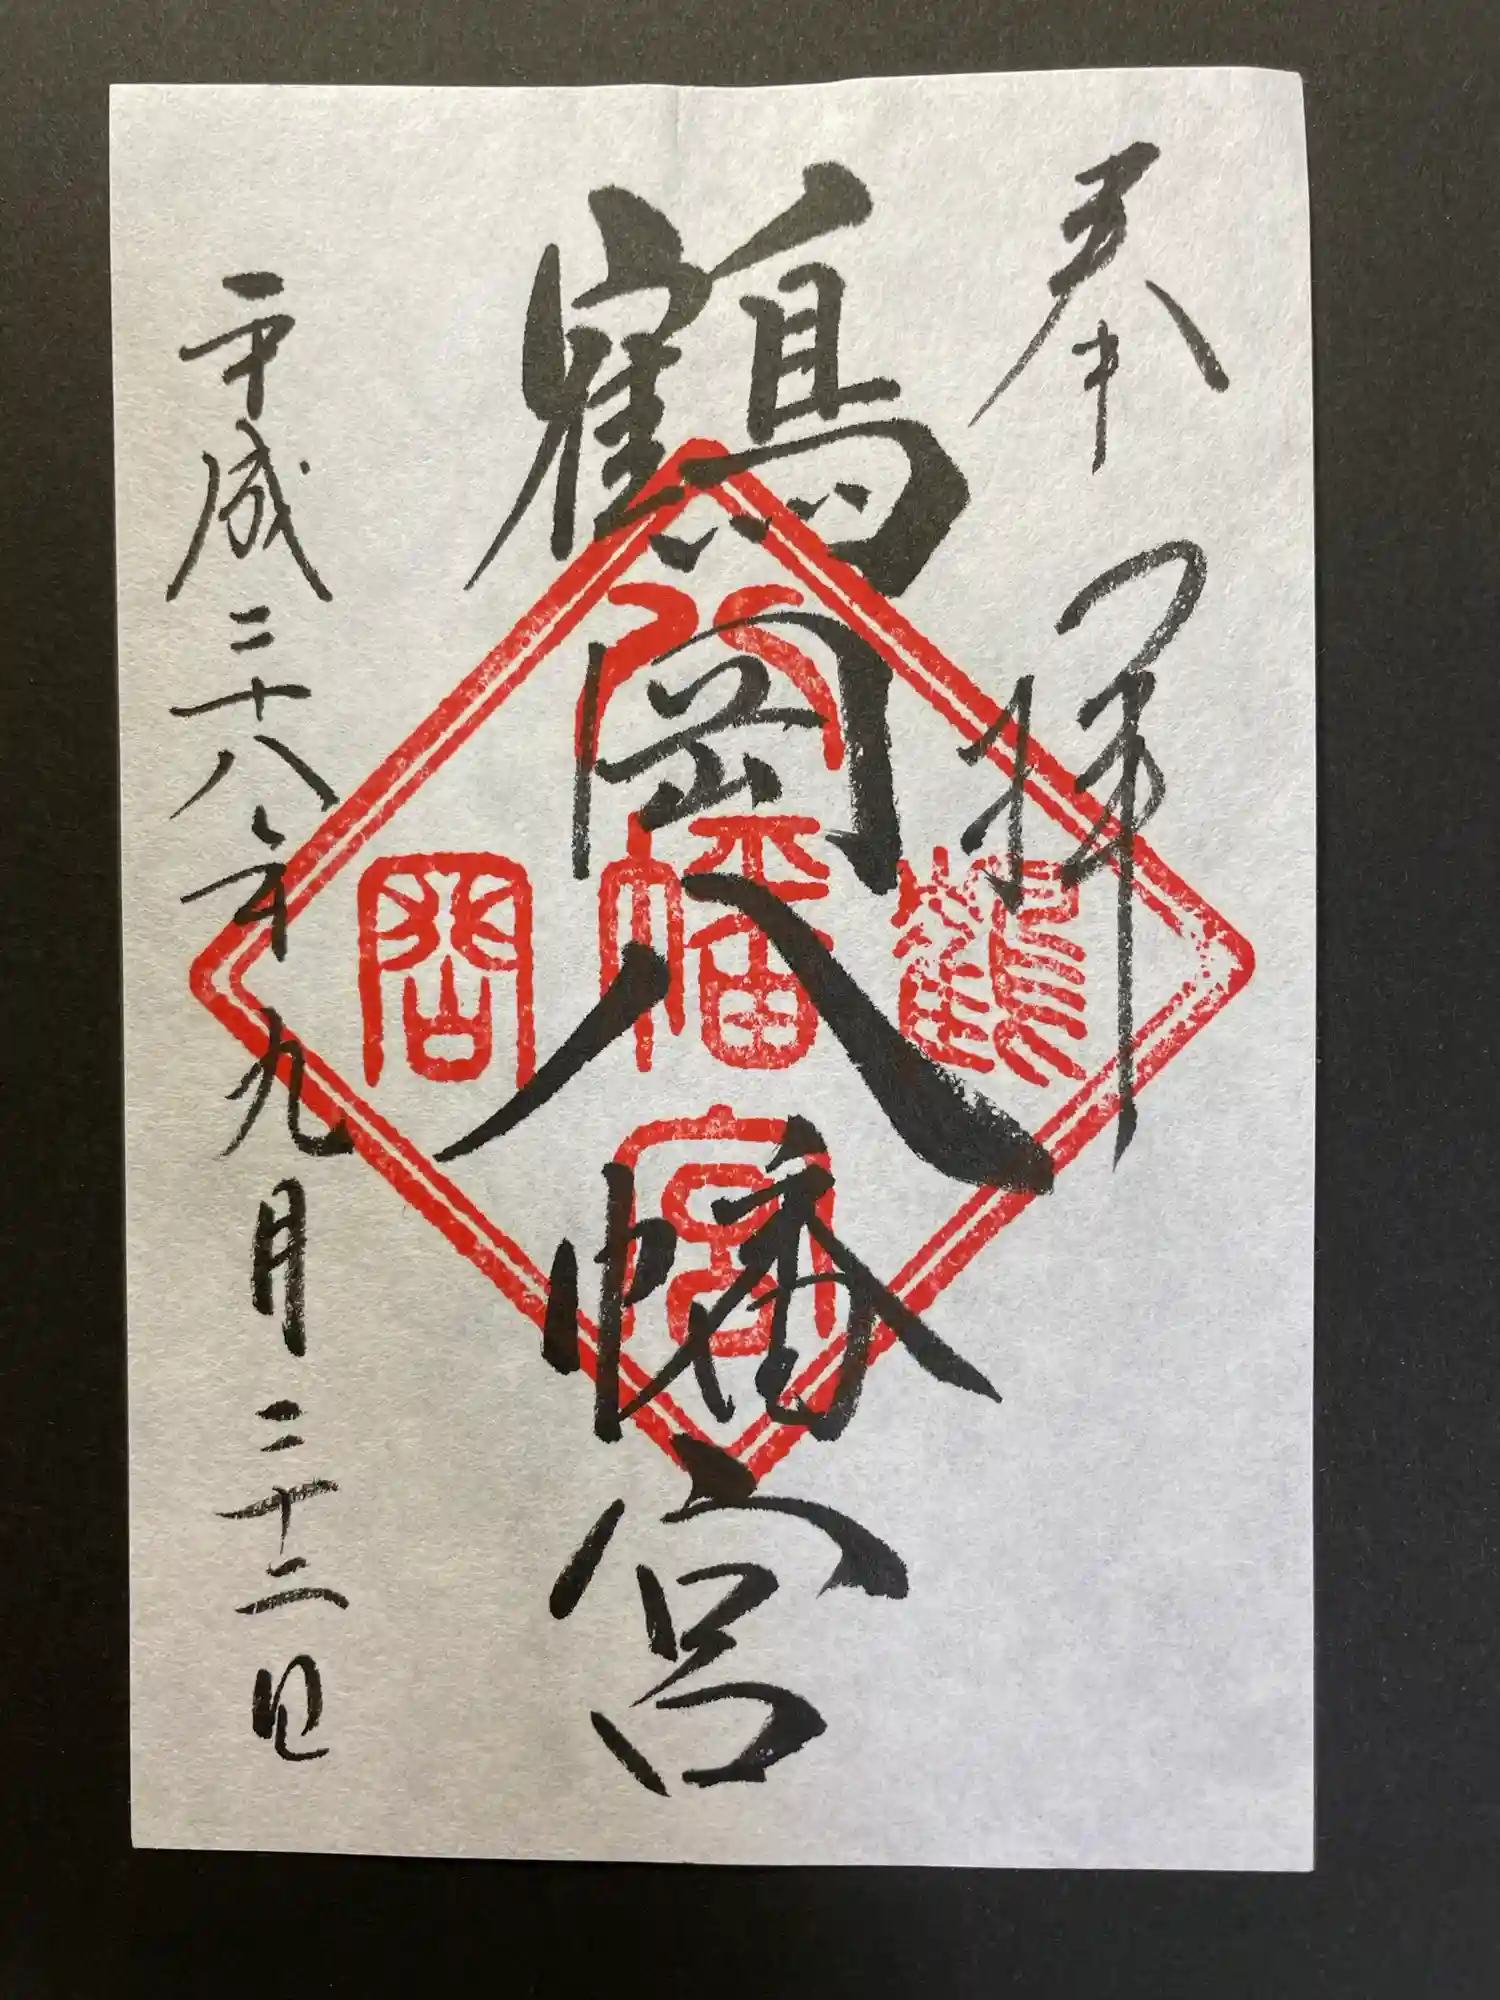 奉拝
鶴岡八幡宮
平成二十八年九月二十二日
鶴岡
八幡宮